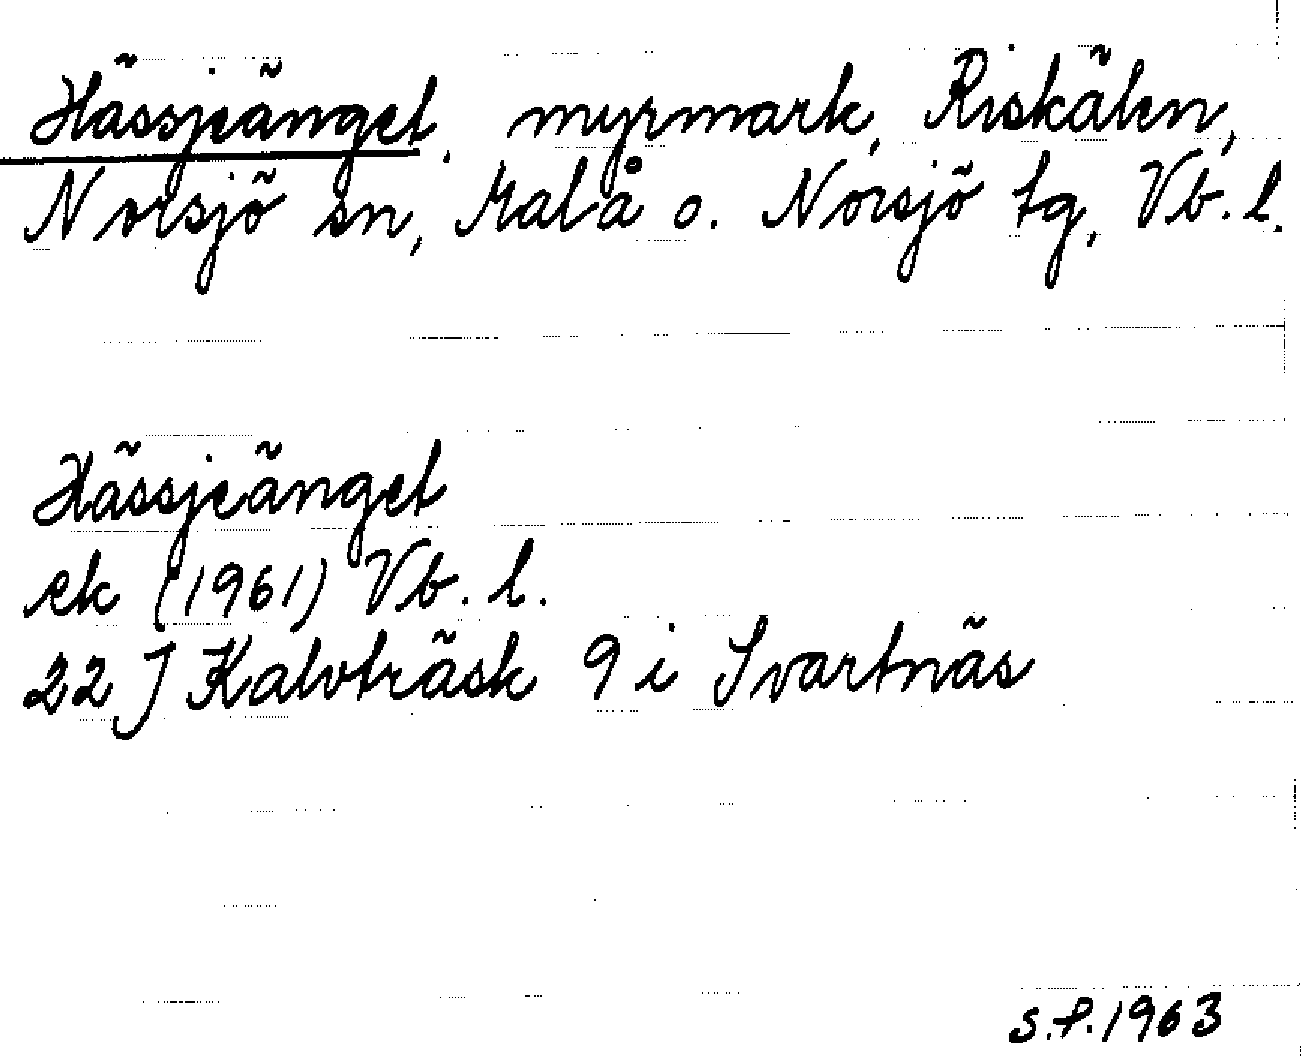 Hässjeänget, myrmark, Riskälen,
Norsjö sn, Malå o. Norsjö tg, Vb. l.
Hässjeänget
ek (1961) Vb. l.
22 J Kalvträsk 9 i Svartnäs
S.P. 1963